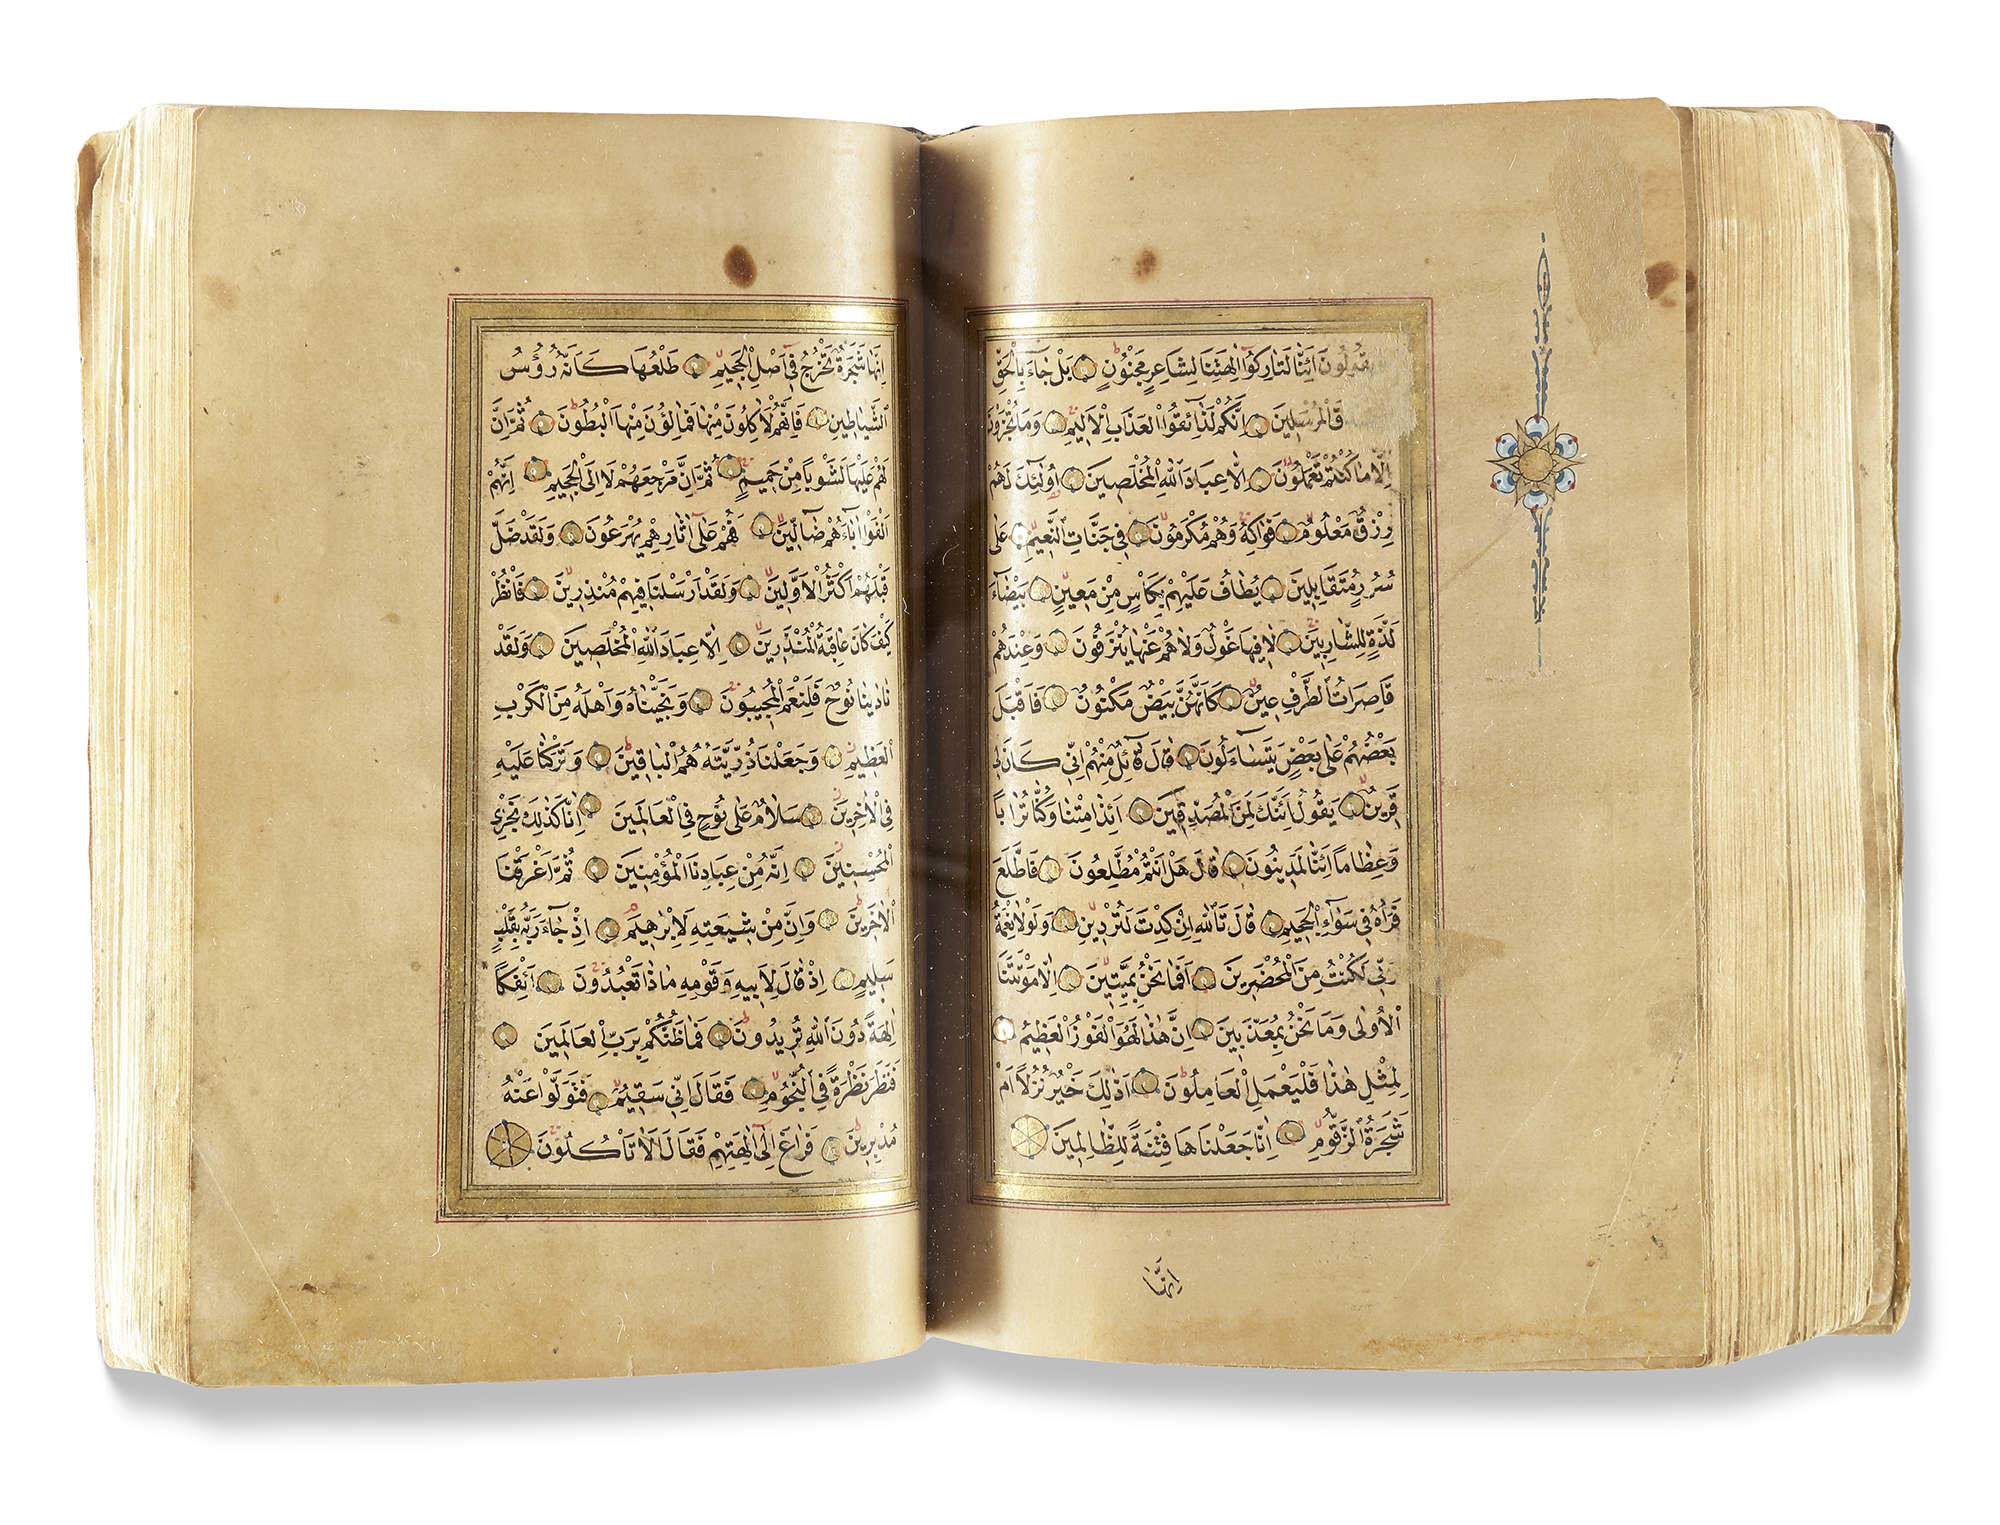 ائِنَّا لَتَارِكُوٓا اٰلِهَتِنَا لِشَاعِرٍ مَجْنُونٍ بَلْ جَٓاءَ بِالْحَقِّ
قَ الْمُرْسَلِينَ اِنَّكُمْ لَذَٓائِقُوا الْعَذَابِ الْاَلِيمِ وَمَا تُجْزَوْنَ
اِلَّا مَا كُنْتُمْ تَعْمَلُونَ اِلَّا عِبَادَ اللّٰهِ الْمُخْلَصِينَ اُولٰٓئِكَ لَهُمْ
رِزْقٌ مَعْلُومٌ فَوَاكِهُ وَهُمْ مُكْرَمُونَ فِي جَنَّاتِ النَّعِيمِ عَلٰى
سُرُرٍ مُتَقَابِلِينَ يُطَافُ عَلَيْهِمْ بِكَأْسٍ مِنْ مَعِينٍ بَيْضَٓاءَ
لَذَّةٍ لِلشَّارِبِينَ لَا فِيهَا غَوْلٌ وَلَا هُمْ عَنْهَا يُنْزَفُونَ وَعِنْدَهُمْ
قَاصِرَاتُ الطَّرْفِ عِينٌ كَاَنَّهُنَّ بَيْضٌ مَكْنُونٌ فَاَقْبَلَ
بَعْضُهُمْ عَلٰى بَعْضٍ يَتَسَٓاءَلُونَ قَالَ قَٓائِلٌ مِنْهُمْ اِنِّي كَانَ لِي
قَرِينٌ يَقُولُ اَئِنَّكَ لَمِنَ الْمُصَدِّقِينَ اَئِذَا مِتْنَا وَكُنَّا تُرَابًا
وَعِظَامًا اَئِنَّا لَمَدِينُونَ قَالَ هَلْ اَنْتُمْ مُطَّلِعُونَ فَاطَّلَعَ
فَرَاٰهُ فِي سَوَٓاءِ الْجَحِيمِ قَالَ تَاللّٰهِ اِنْ كِدْتَ لَتُرْدِينِ وَلَوْلَا نِعْمَةُ
رَبِّي لَكُنْتُ مِنَ الْمُحْضَرِينَ اَفَمَا نَحْنُ بِمَيِّتِينَ اِلَّا مَوْتَتَنَا
الْاُولٰى وَمَا نَحْنُ بِمُعَذَّبِينَ اِنَّ هٰذَا لَهُوَ الْفَوْزُ الْعَظِيمُ
لِمِثْلِ هٰذَا فَلْيَعْمَلِ الْعَامِلُونَ اَذٰلِكَ خَيْرٌ نُزُلًا اَمْ
شَجَرَةُ الزَّقُّومِ اِنَّا جَعَلْنَاهَا فِتْنَةً لِلظَّالِمِينَ
اِنَّهَا
اِنَّهَا شَجَرَةٌ تَخْرُجُ فِٓي اَصْلِ الْجَحِيمِ طَلْعُهَا كَاَنَّهُ رُؤُسُ
الشَّيَاطِينِ فَاِنَّهُمْ لَاٰكِلُونَ مِنْهَا فَمَالِؤُنَ مِنْهَا الْبُطُونَ ثُمَّ اِنَّ
لَهُمْ عَلَيْهَا لَشَوْبًا مِنْ حَمِيمٍ ثُمَّ اِنَّ مَرْجِعَهُمْ لَاِلَى الْجَحِيمِ اِنَّهُمْ
اَلْفَوْا اٰبَٓاءَهُمْ ضَٓالِّينَ فَهُمْ عَلٰٓى اٰثَارِهِمْ يُهْرَعُونَ وَلَقَدْ ضَلَّ
قَبْلَهُمْ اَكْثَرُ الْاَوَّلِينَ وَلَقَدْ اَرْسَلْنَا فِيهِمْ مُنْذِرِينَ فَانْظُرْ
كَيْفَ كَانَ عَاقِبَةُ الْمُنْذَرِينَ اِلَّا عِبَادَ اللّٰهِ الْمُخْلَصِينَ وَلَقَدْ
نَادٰينَا نُوحٌ فَلَنِعْمَ الْمُجِيبُونَ وَنَجَّيْنَاهُ وَاَهْلَهُ مِنَ الْكَرْبِ
الْعَظِيمِ وَجَعَلْنَا ذُرِّيَّتَهُ هُمُ الْبَاقِينَ وَتَرَكْنَا عَلَيْهِ
فِي الْاٰخِرِينَ سَلَامٌ عَلٰى نُوحٍ فِي الْعَالَمِينَ اِنَّا كَذٰلِكَ نَجْزِي
الْمُحْسِنِينَ اِنَّهُ مِنْ عِبَادِنَا الْمُؤْمِنِينَ ثُمَّ اَغْرَقْنَا
الْاٰخَرِينَ وَاِنَّ مِنْ شِيعَتِهِ لَاِبْرٰهِيمَ اِذْ جَٓاءَ رَبَّهُ بِقَلْبٍ
سَلِيمٍ اِذْ قَالَ لِاَبِيهِ وَقَوْمِهِ مَاذَا تَعْبُدُونَ اَئِفْكًا
اٰلِهَةً دُونَ اللّٰهِ تُرِيدُونَ فَمَا ظَنُّكُمْ بِرَبِّ الْعَالَمِينَ
فَنَظَرَ نَظْرَةً فِي النُّجُومِ فَقَالَ اِنِّي سَقِيمٌ فَتَوَلَّوْا عَنْهُ
مُدْبِرِينَ فَرَاغَ اِلٰٓى اٰلِهَتِهِمْ فَقَالَ اَلَا تَأْكُلُونَ